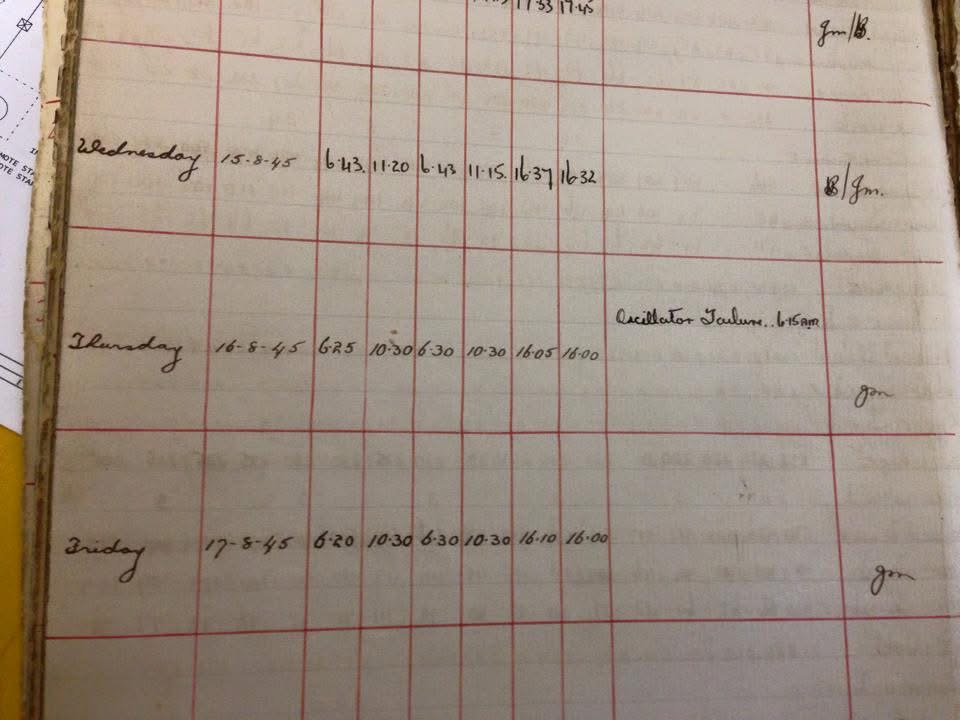 17.33 17.45
gm/B.
Wednesday 15-8-45 6.43. 11.20 6.43 11.15. 16.37 16.32
B/gm.
Oscillator Failure.. 6.15AM
Thursday 16-8-45 6.25 10.30 6.30 10.30 16.05 16.00
gm
Friday 17-8-45 6.20 10.30 6.30 10.30 16.10 16.00
gm